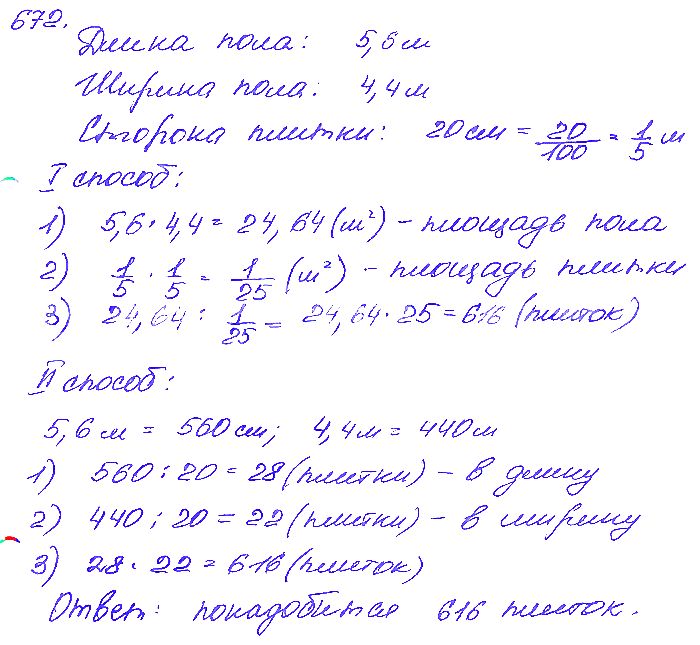 672.
Длина пола: 5,6 м
Ширина пола: 4,4 м
Сторона плитки: 20 см = 20/100 = 1/5 м
I способ:
1) 5,6 · 4,4 = 24,64 (м²) – площадь пола
2) 1/5 · 1/5 = 1/25 (м²) – площадь плитки
3) 24,64 : 1/25 = 24,64 · 25 = 616 (плиток)
II способ:
5,6 м = 560 см; 4,4 м = 440 м
1) 560 : 20 = 28 (плитки) – в длину
2) 440 : 20 = 22 (плитки) – в ширину
3) 28 · 22 = 616 (плиток)
Ответ: понадобиться 616 плиток.